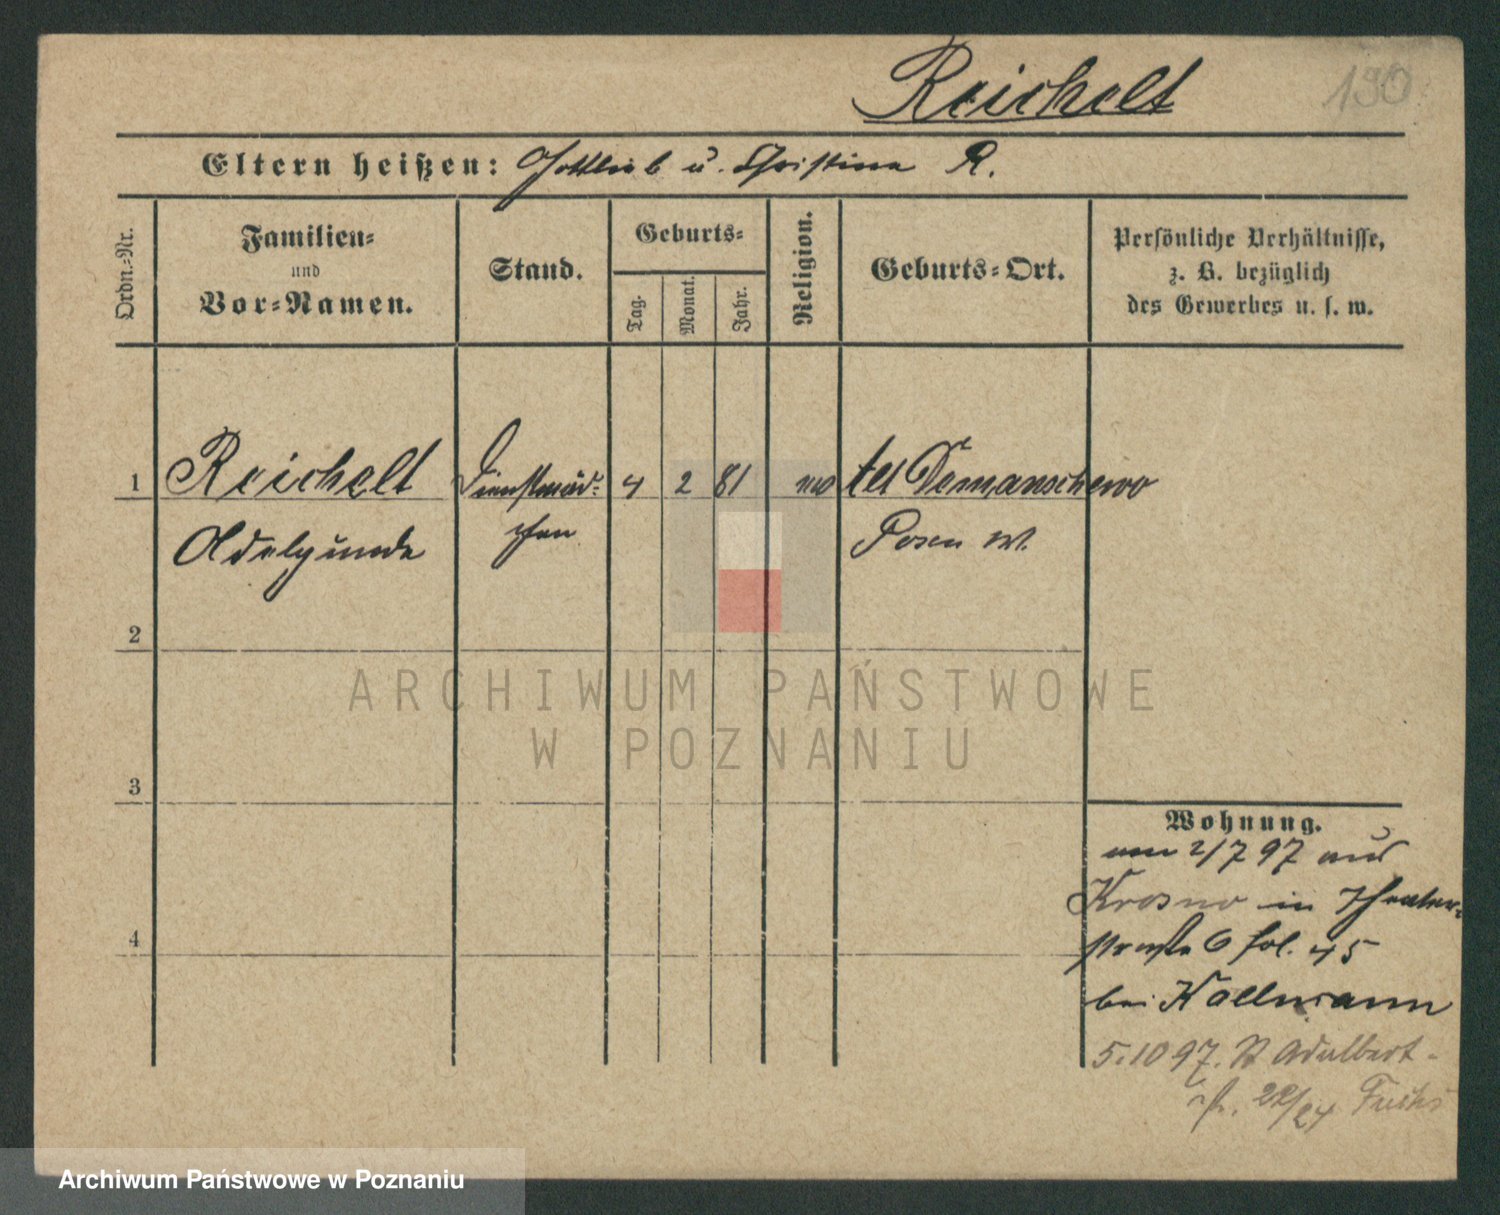 Reichelt 130
Eltern heißen: Gottlieb u. Christina R.
Ordn.-Nr.
Familien-
und
Vor-Namen.
Stand.
Geburts-
Tag.
Monat.
Jahr.
Religion.
Geburts-Ort.
Persönliche Verhältnisse,
z. B. bezüglich
des Gewerbes u. s. w.
1 Reichelt Dienstmäd- 4 2 81 Demanschewo
Adelgunde chen Posen W.
2
ARCHIWUM PAŃSTWOWE
W POZNANIU
3
Wohnung.
am 2/7 97 aus
Krosno in Theater-
straße 6 fol. 45
bei Kallmann
4
5.10 97. St Adalbert-
str. 22/24 Fuchs
Archiwum Państwowe w Poznaniu